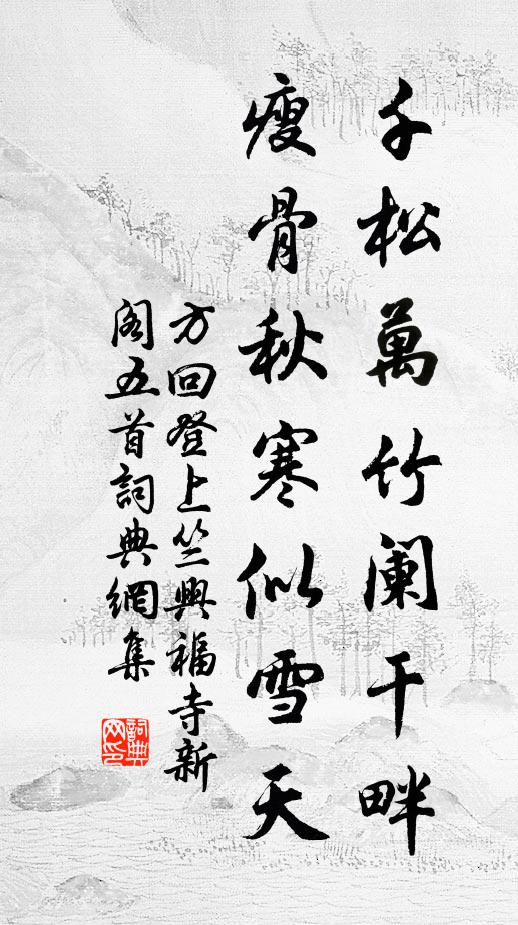 千松萬竹闌干畔
瘦骨秋寒似雪天
方回登上竺興福寺新
閣五首詞典網集
詞典
网印